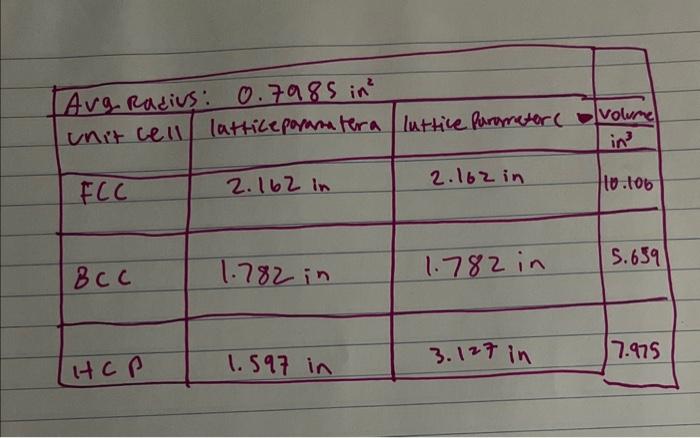 Avg Radius: 0.7985 in²
unit cell lattice parameter a lattice Parameter c volume in³
FCC 2.162 in 2.162 in 10.106
BCC 1.782 in 1.782 in 5.659
HCP 1.597 in 3.127 in 7.975